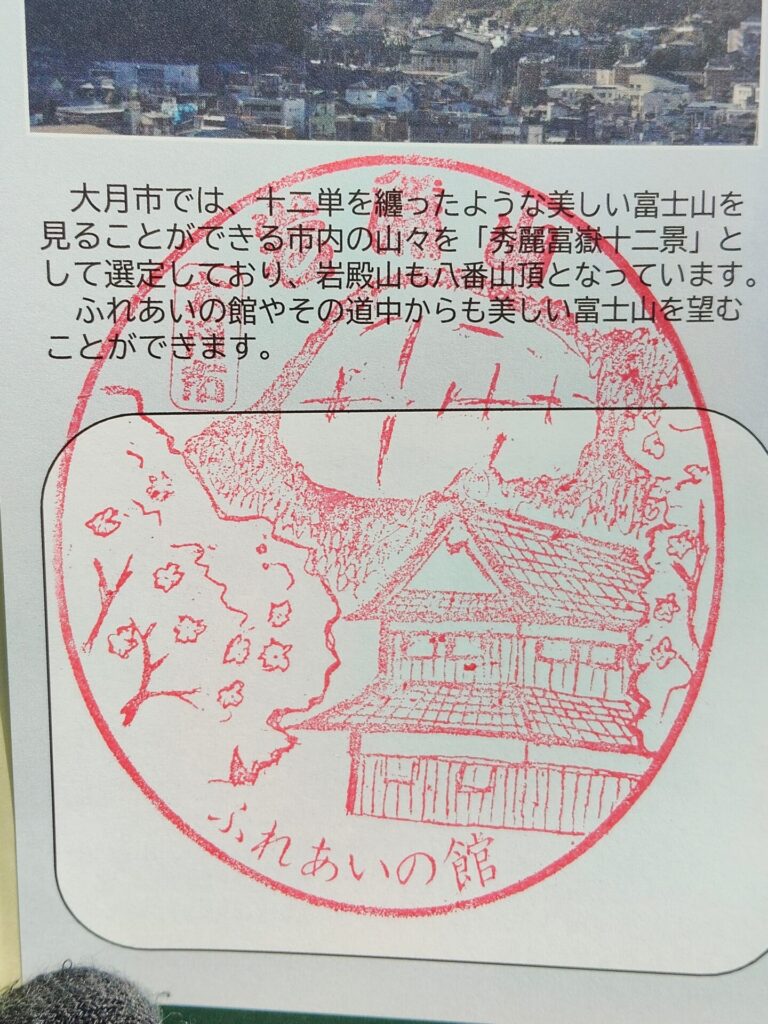 大月市では、十二単を纏ったような美しい富士山を
見ることができる市内の山々を「秀麗富嶽十二景」と
して選定しており、岩殿山も八番山頂となっています。
ふれあいの館やその道中からも美しい富士山を望む
ことができます。
ふれあいの館